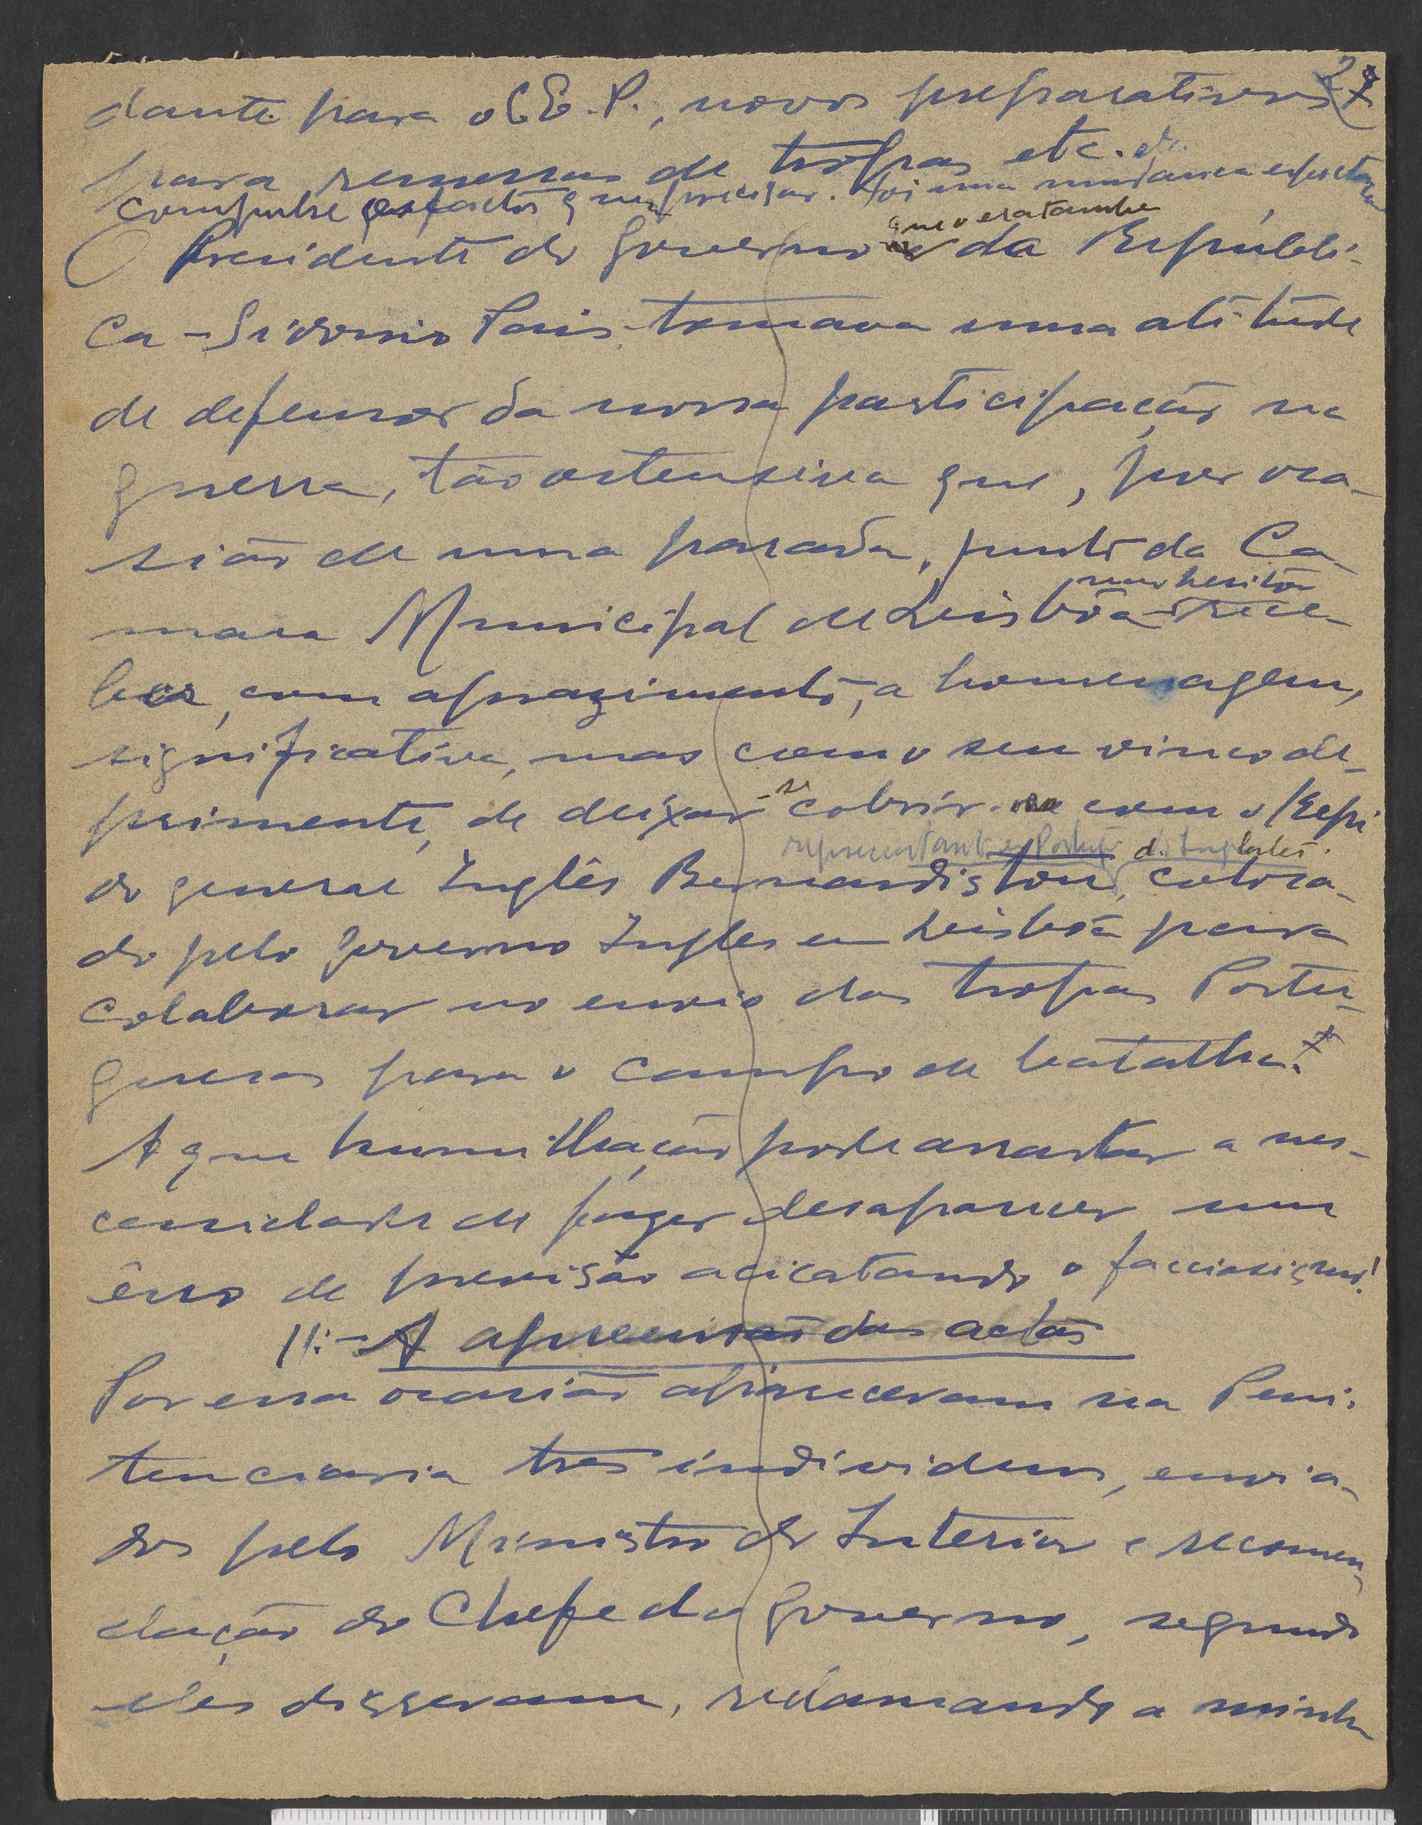 27
dante para o C.E.P., novos preparativos
para remessas de tropas etc. etc.
compulse os factos quem precisar. Foi uma mudança
que o era tambem
O Presidente do Governo da Repúbli-
ca - Sidonio Pais - tomava uma atitude
de defensor da nossa participação na
guerra, tão ostensiva que, por oca-
sião de uma parada, junto da Ca-
mara Municipal de Lisbôa rece-
ber, com aprazimento, a homenagem,
significativa, mas com o seu vinco de-
primente, de deixar-se cobrir com o Kepi
representante em Portugal d. Inglater.
do general Inglês Bernardiston, coloca-
do pelo Governo Ingles em Lisbôa para
colaborar no envio das tropas Portu-
guesas para o campo de batalha.
A que humilhação pode arrastar a nes-
cessidade de fingir desaparecer um
êrro de previsão acicatando o facciosismo!
11: - A apreensão das actas
Por essa ocasião apareceram na Peni-
tenciaria tres individuos, envia-
dos pelo Ministro do Interior e recomen-
dação do Chefe do Governo, segundo
eles disseram, reclamando a minha